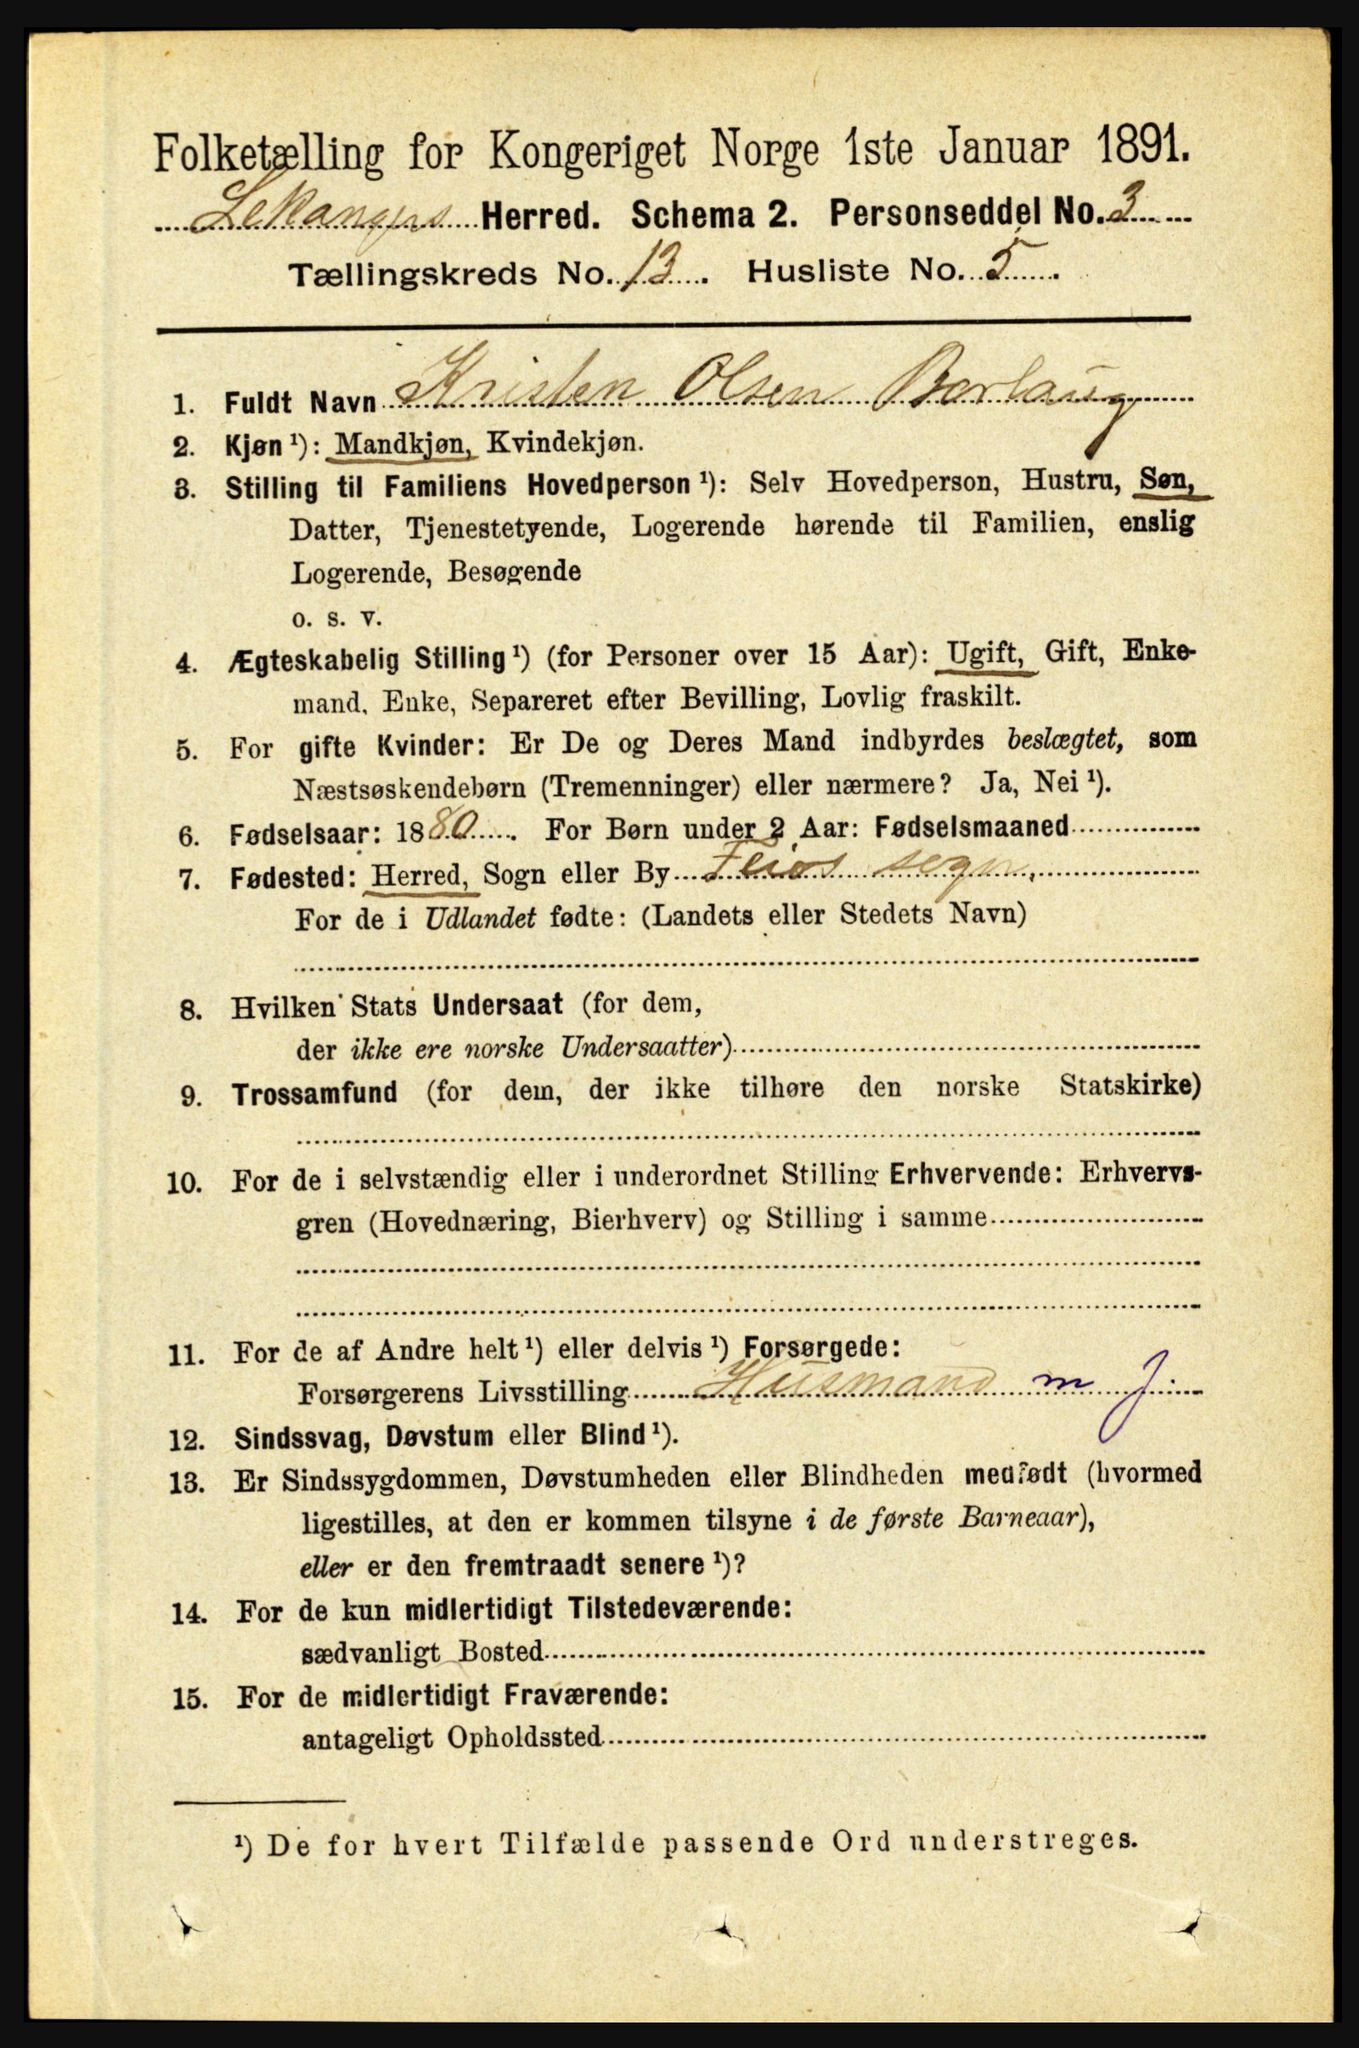 Folketælling for Kongeriget Norge 1ste Januar 1891.
Lekangers Herred. Schema 2. Personseddel No. 3
Tællingskreds No. 13. Husliste No. 5.
1. Fuldt Navn Kristen Olsen Borlaug
2. Kjøn ¹): Mandkjøn, Kvindekjøn.
3. Stilling til Familiens Hovedperson ¹): Selv Hovedperson, Hustru, Søn,
Datter, Tjenestetyende, Logerende hørende til Familien, enslig
Logerende, Besøgende
o. s. v.
4. Ægteskabelig Stilling ¹) (for Personer over 15 Aar): Ugift, Gift, Enke-
mand, Enke, Separeret efter Bevilling, Lovlig fraskilt.
5. For gifte Kvinder: Er De og Deres Mand indbyrdes beslægtet, som
Næstsøskendebørn (Tremenninger) eller nærmere? Ja, Nei ¹).
6. Fødselsaar: 1880. For Børn under 2 Aar: Fødselsmaaned
7. Fødested: Herred, Sogn eller By Feios sogn,
For de i Udlandet fødte: (Landets eller Stedets Navn)
8. Hvilken Stats Undersaat (for dem,
der ikke ere norske Undersaatter)
9. Trossamfund (for dem, der ikke tilhøre den norske Statskirke)
10. For de i selvstændig eller i underordnet Stilling Erhvervende: Erhvervs-
gren (Hovednæring, Bierhverv) og Stilling i samme
11. For de af Andre helt ¹) eller delvis ¹) Forsørgede:
Forsørgerens Livsstilling Husmand m J.
12. Sindssvag, Døvstum eller Blind ¹).
13. Er Sindssygdommen, Døvstumheden eller Blindheden medfødt (hvormed
ligestilles, at den er kommen tilsyne i de første Barneaar),
eller er den fremtraadt senere ¹)?
14. For de kun midlertidigt Tilstedeværende:
sædvanligt Bosted
15. For de midlertidigt Fraværende:
antageligt Opholdssted
¹) De for hvert Tilfælde passende Ord understreges.